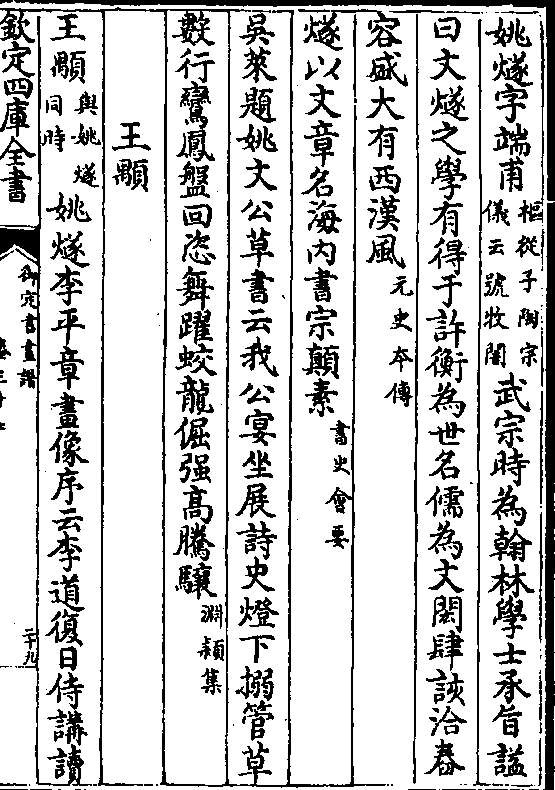 姚燧字端甫樞從子陶宗儀云號牧闇武宗時為翰林學士承旨謚
曰文燧之學有得于許衡為世名儒為文閎肆該洽舂
容盛大有西漢風元史本傳
燧以文章名海內書宗顛素書史會要
吳萊題姚文公草書云我公宴坐展詩史燈下搦管草
數行鸞鳳盤回恣舞躍蛟龍倔强高騰驤淵穎集
王顒
王顒與姚燧同時姚燧李平章畫像序云李道復日侍講讀
欽定四庫全書
御定書畫譜
二十九